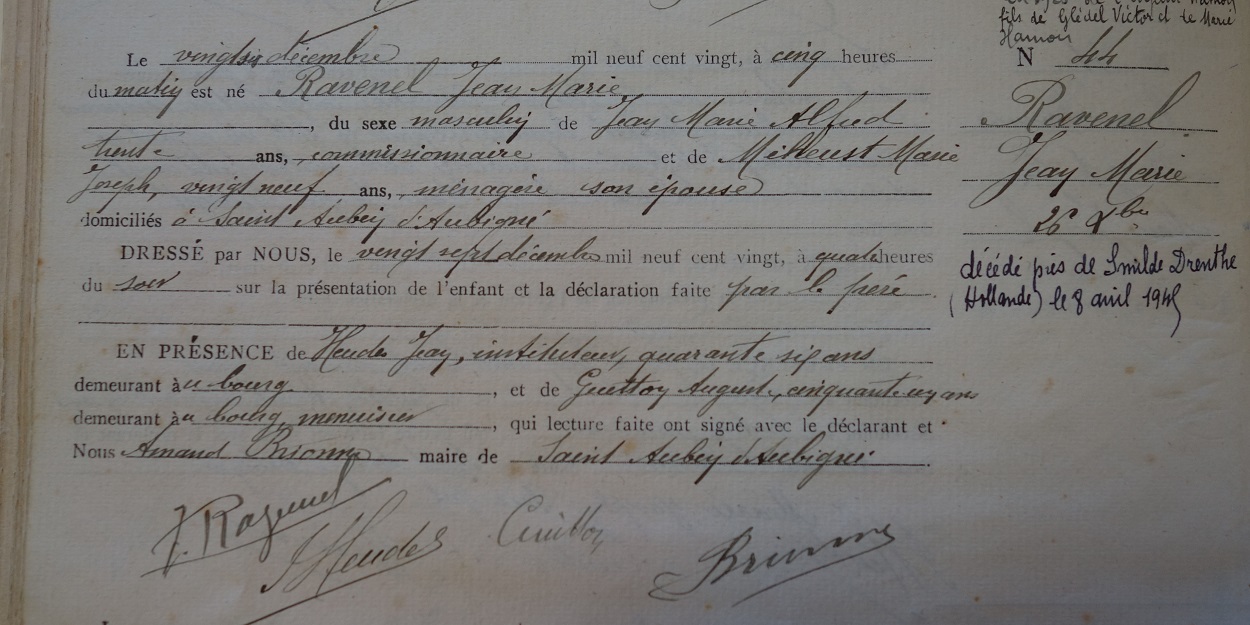 fils de Glédel Victor et de Marie
Hamon
N 44
Ravenel
Jean Marie
26 Xbre
décédé près de Smilde Drenthe
(Hollande) le 8 avril 1945
Le vingt six décembre mil neuf cent vingt, à cinq heures
du matin est né Ravenel Jean Marie
, du sexe masculin de Jean Marie Alfred
trente ans, commissionnaire et de Milleust Marie
Joseph, vingt neuf ans, ménagère son épouse
domiciliés à Saint Aubin d'Aubigné
DRESSÉ par NOUS, le vingt sept décembre mil neuf cent vingt, à quatre heures
du soir sur la présentation de l'enfant et la déclaration faite par le père
EN PRÉSENCE de Heudes Jean, instituteur, quarante six ans
demeurant au bourg, et de Guitton Auguste, cinquante un ans
demeurant au bourg menuisier, qui lecture faite ont signé avec le déclarant et
Nous Amand Brionne maire de Saint Aubin d'Aubigné
J. Ravenel
Heudes
Guitton
Brionne